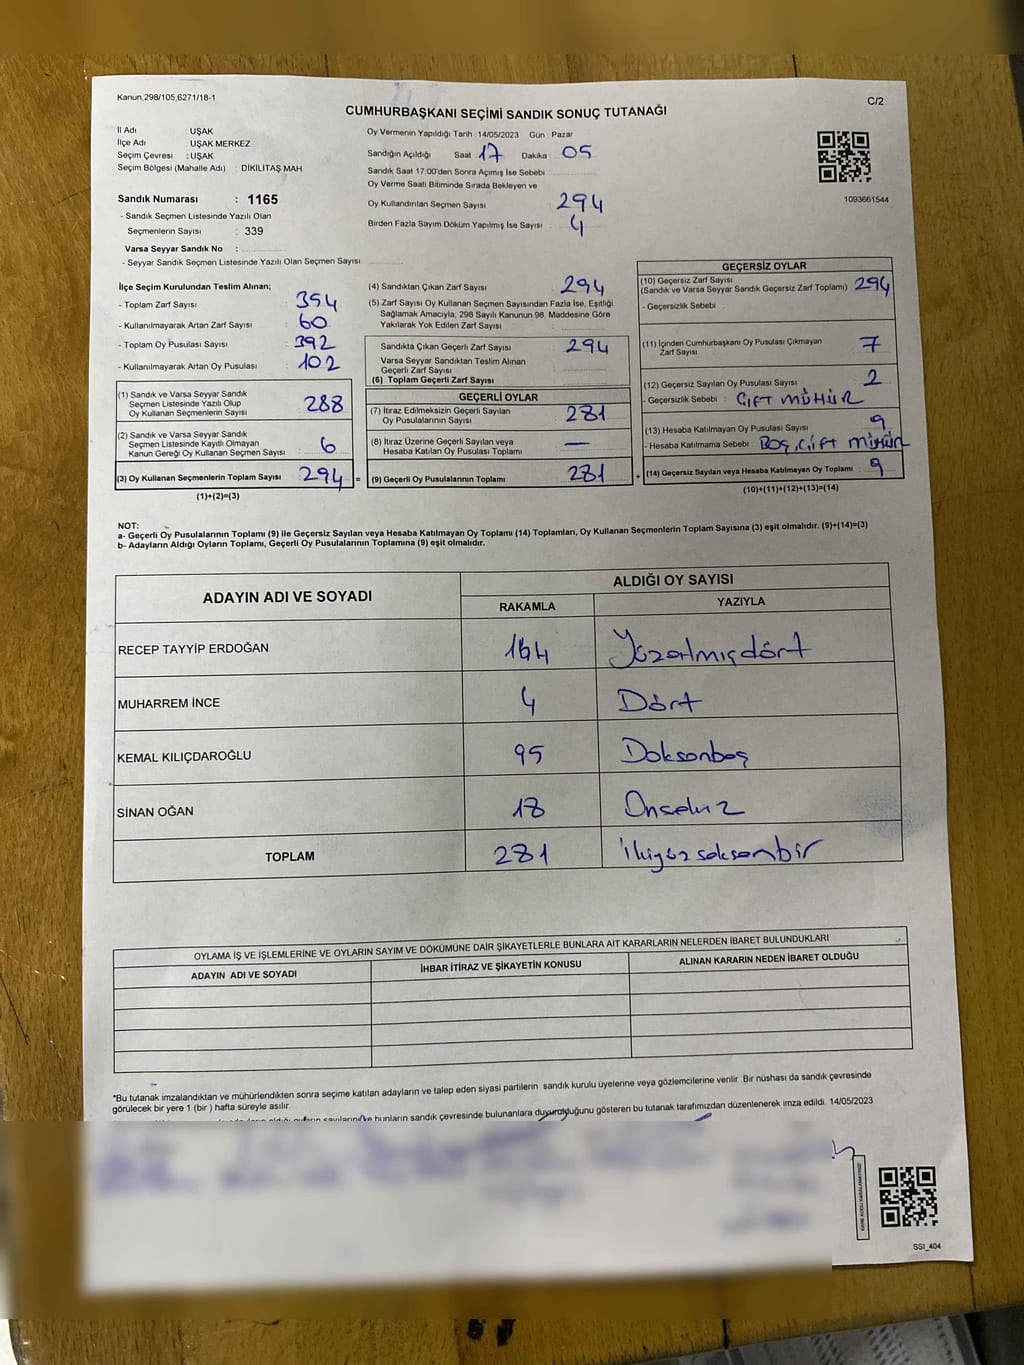 Kanun,298/105,6271/18-1
C/2
CUMHURBAŞKANI SEÇİMİ SANDIK SONUÇ TUTANAĞI
İl Adı : UŞAK
İlçe Adı : UŞAK MERKEZ
Seçim Çevresi : UŞAK
Seçim Bölgesi (Mahalle Adı) DİKİLİTAŞ MAH
Sandık Numarası : 1165
- Sandık Seçmen Listesinde Yazılı Olan
Seçmenlerin Sayısı : 339
Varsa Seyyar Sandık No :
- Seyyar Sandık Seçmen Listesinde Yazılı Olan Seçmen Sayısı
Oy Vermenin Yapıldığı Tarih : 14/05/2023 Gün : Pazar
Sandığın Açıldığı Saat 17 Dakika 05
Sandık Saat 17:00'den Sonra Açımış İse Sebebi :
Oy Verme Saati Bitiminde Sırada Bekleyen ve
Oy Kullandırılan Seçmen Sayısı 294
Birden Fazla Sayım Döküm Yapılmış İse Sayısı : 4
1093661544
İlçe Seçim Kurulundan Teslim Alınan;
- Toplam Zarf Sayısı : 354
- Kullanılmayarak Artan Zarf Sayısı : 60
- Toplam Oy Pusulası Sayısı : 392
- Kullanılmayarak Artan Oy Pusulası : 102
(1) Sandık ve Varsa Seyyar Sandık
Seçmen Listesinde Yazılı Olup
Oy Kullanan Seçmenlerin Sayısı : 288
(2) Sandık ve Varsa Seyyar Sandık
Seçmen Listesinde Kayıtlı Olmayan
Kanun Gereği Oy Kullanan Seçmen Sayısı : 6
(3) Oy Kullanan Seçmenlerin Toplam Sayısı : 294 =
(1)+(2)=(3)
(4) Sandıktan Çıkan Zarf Sayısı : 294
(5) Zarf Sayısı Oy Kullanan Seçmen Sayısından Fazla İse, Eşitliği
Sağlamak Amacıyla, 298 Sayılı Kanunun 98. Maddesine Göre
Yakılarak Yok Edilen Zarf Sayısı :
Sandıkta Çıkan Geçerli Zarf Sayısı : 294
Varsa Seyyar Sandıktan Teslim Alınan
Geçerli Zarf Sayısı :
(6) Toplam Geçerli Zarf Sayısı :
GEÇERLİ OYLAR
(7) İtiraz Edilmeksizin Geçerli Sayılan
Oy Pusulasının Sayısı : 281
(8) İtiraz Üzerine Geçerli Sayılan veya
Hesaba Katılan Oy Pusulası Toplamı : —
(9) Geçerli Oy Pusulalarının Toplamı : 281 +
GEÇERSİZ OYLAR
(10) Geçersiz Zarf Sayısı
(Sandık ve Varsa Seyyar Sandık Geçersiz Zarf Toplamı) : 294
- Geçersizlik Sebebi :
(11) İçinden Cumhurbaşkanı Oy Pusulası Çıkmayan
Zarf Sayısı : 7
(12) Geçersiz Sayılan Oy Pusulası Sayısı : 2
- Geçersizlik Sebebi : ÇİFT MÜHÜR
(13) Hesaba Katılmayan Oy Pusulası Sayısı : 9
- Hesaba Katılmama Sebebi : BOŞ, ÇİFT MÜHÜR
(14) Geçersiz Sayılan veya Hesaba Katılmayan Oy Toplamı : 9
(10)+(11)+(12)+(13)=(14)
NOT:
a- Geçerli Oy Pusulalarının Toplamı (9) ile Geçersiz Sayılan veya Hesaba Katılmayan Oy Toplamı (14) Toplamları, Oy Kullanan Seçmenlerin Toplam Sayısına (3) eşit olmalıdır. (9)+(14)=(3)
b- Adayların Aldığı Oyların Toplamı, Geçerli Oy Pusulalarının Toplamına (9) eşit olmalıdır.
ADAYIN ADI VE SOYADI
ALDIĞI OY SAYISI
RAKAMLA YAZIYLA
RECEP TAYYİP ERDOĞAN 164 Yüzatmışdört
MUHARREM İNCE 4 Dört
KEMAL KILIÇDAROĞLU 95 Doksanbeş
SİNAN OĞAN 18 Onsekiz
TOPLAM 281 ikiyüzseksenbir
OYLAMA İŞ VE İŞLEMLERİNE VE OYLARIN SAYIM VE DÖKÜMÜNE DAİR ŞİKAYETLERLE BUNLARA AİT KARARLARIN NELERDEN İBARET BULUNDUKLARI
ADAYIN ADI VE SOYADI İHBAR İTİRAZ VE ŞİKAYETİN KONUSU ALINAN KARARIN NEDEN İBARET OLDUĞU
*Bu tutanak imzalandıktan ve mühürlendikten sonra seçime katılan adayların ve talep eden siyasi partilerin sandık kurulu üyelerine veya gözlemcilerine verilir. Bir nüshası da sandık çevresinde
görülecek bir yere 1 (bir ) hafta süreyle asılır.
bunların sandık çevresinde bulunanlara duyurulduğunu gösteren bu tutanak tarafımızdan düzenlenerek imza edildi. 14/05/2023
SSI_404